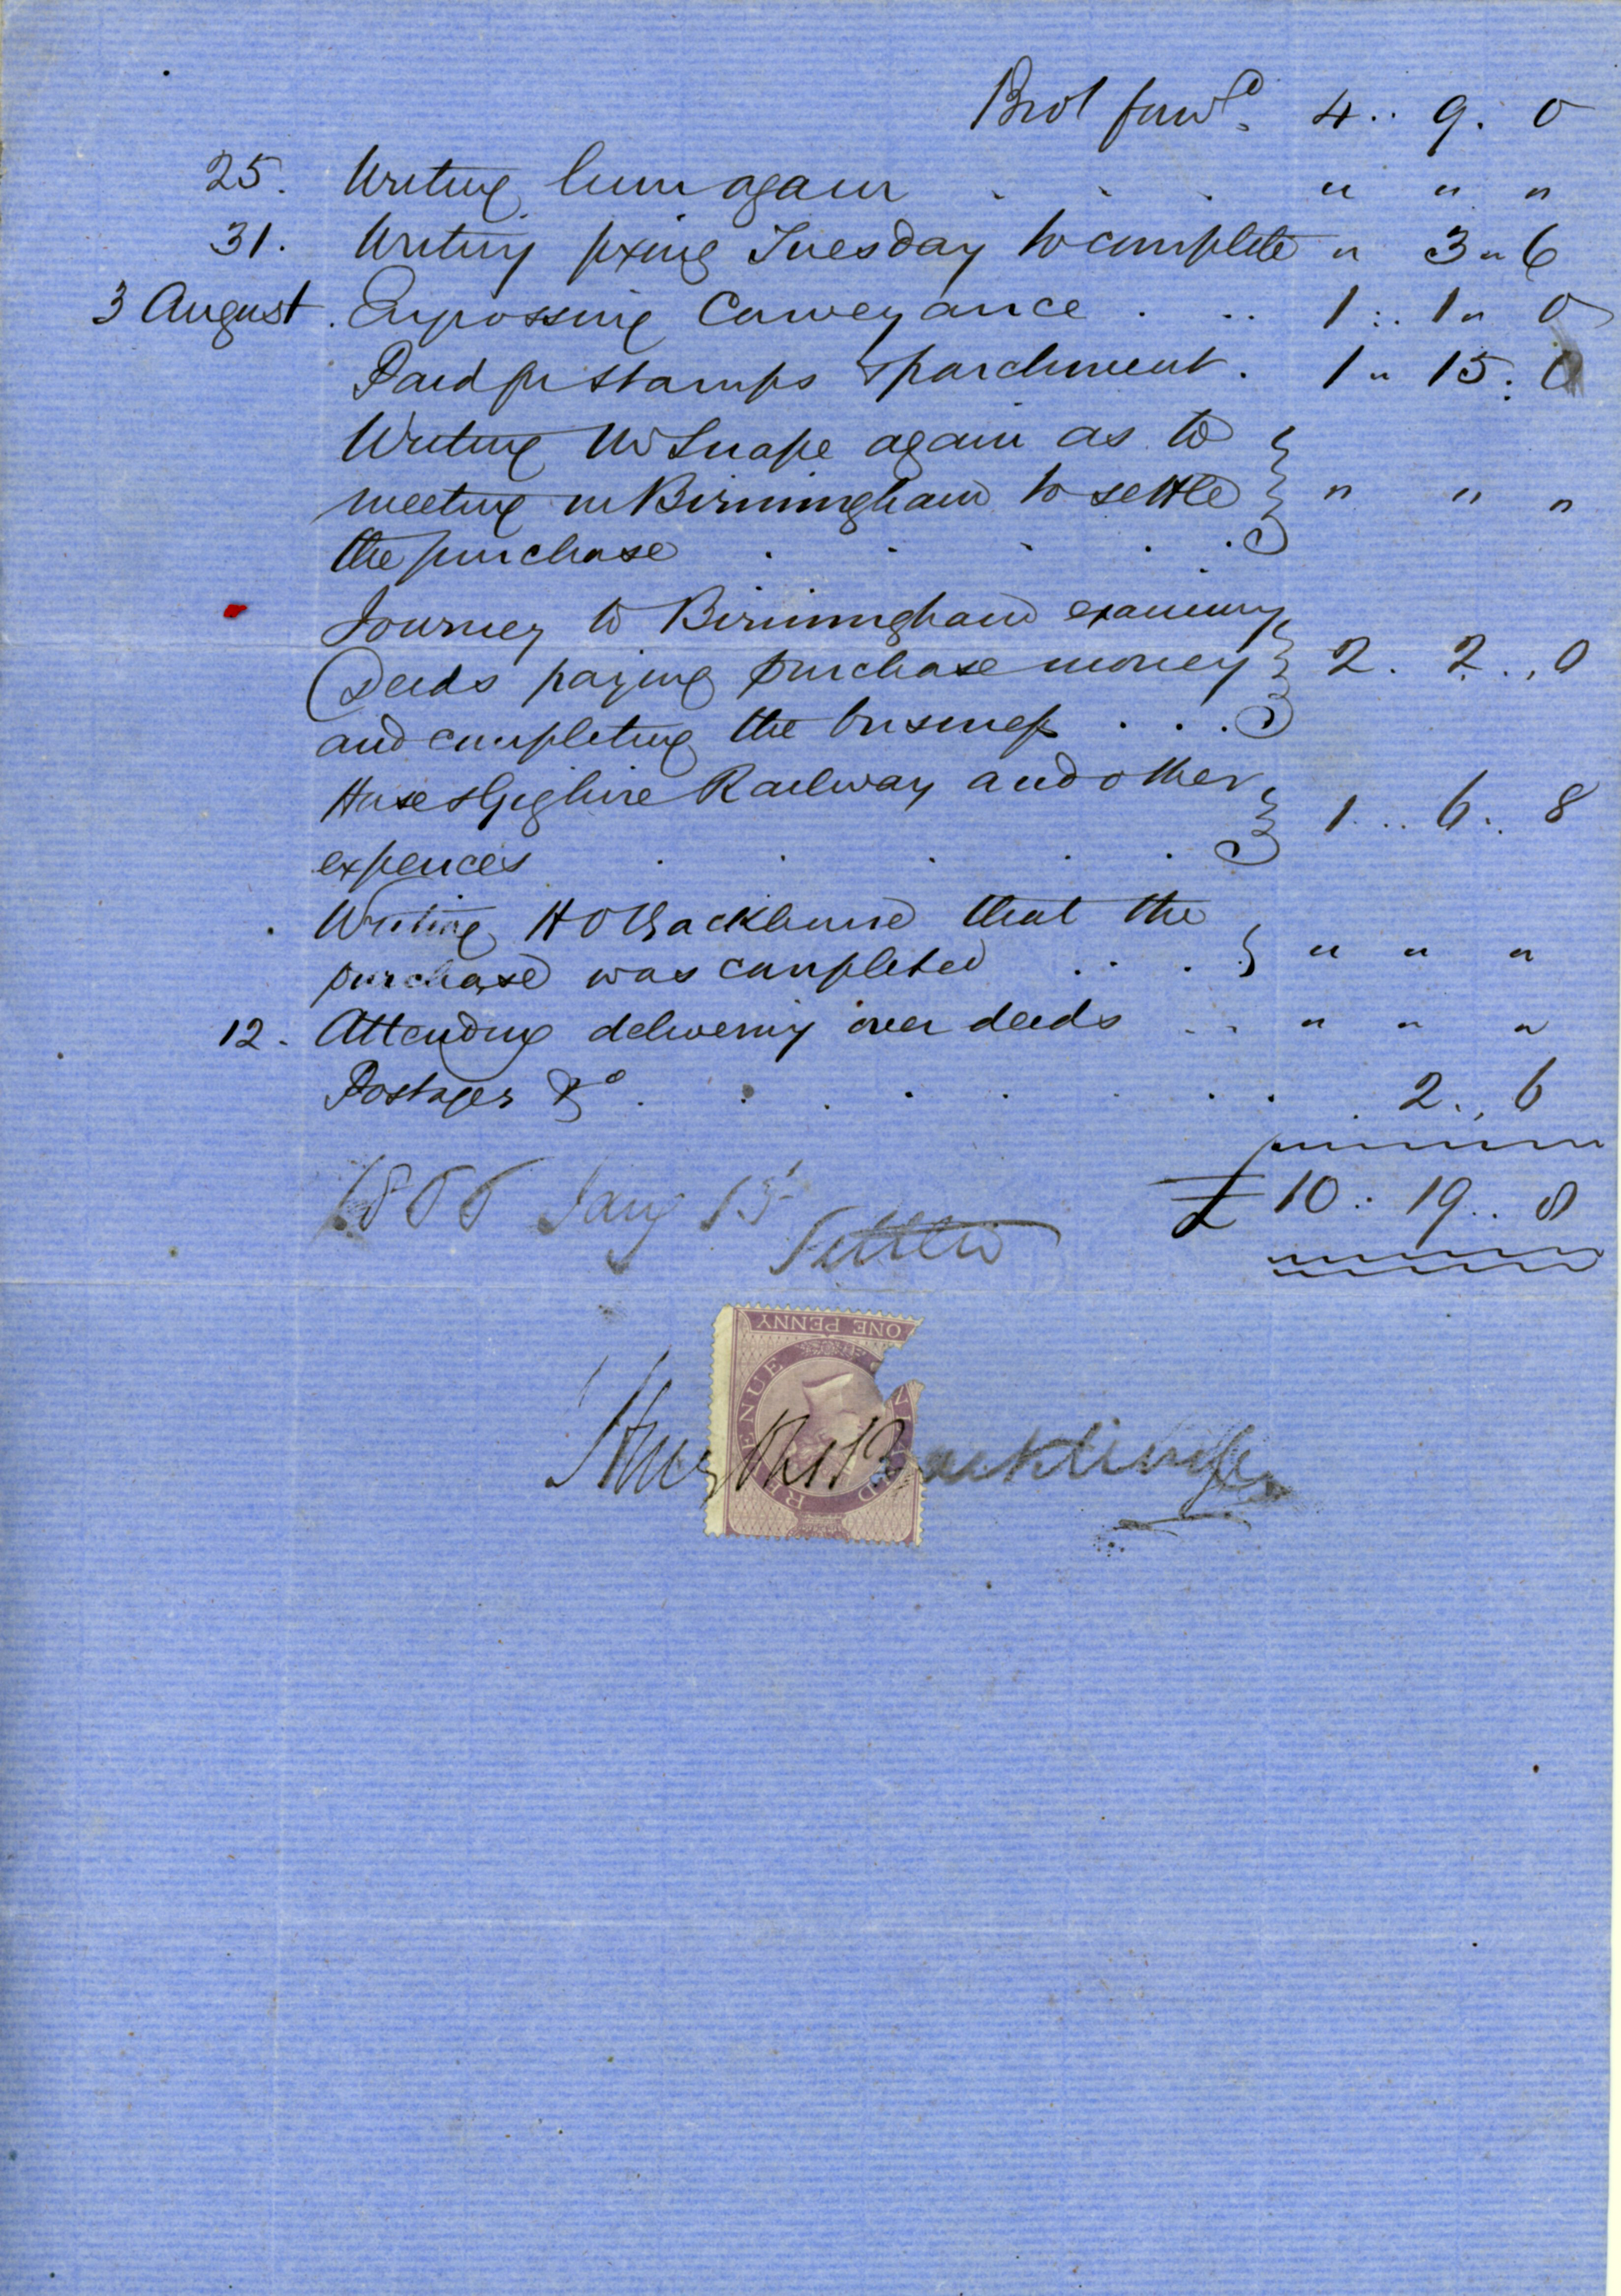 Brot forwd. 4 .. 9 . 0
25. Writing him again . . . " " "
31. Writing fixing Tuesday to complete " 3 " 6
3 August. Engrossing Conveyance . .. 1 : . 1 " 0
Paid for stamps & parchment . 1 " 15 . 0
Writing Mr Snape again as to
meeting in Birmingham to settle " " "
the purchase . . . . .
Journey to Birmingham examining
Deeds paying purchase money 2 . 2 .. 0
and completing the business . . .
Horse & Gig hire Railway and other
1 ... 6 . 8
expences . . . . .
Writing H O Backhouse that the
purchase was completed . . . " " "
12. Attending delivering over deeds .. " " "
Postages &c . . . . . . . . 2 .. 6
£ 10 : 19 .. 8
Jany 13
Settled
ONE PENNY
INLAND REVENUE